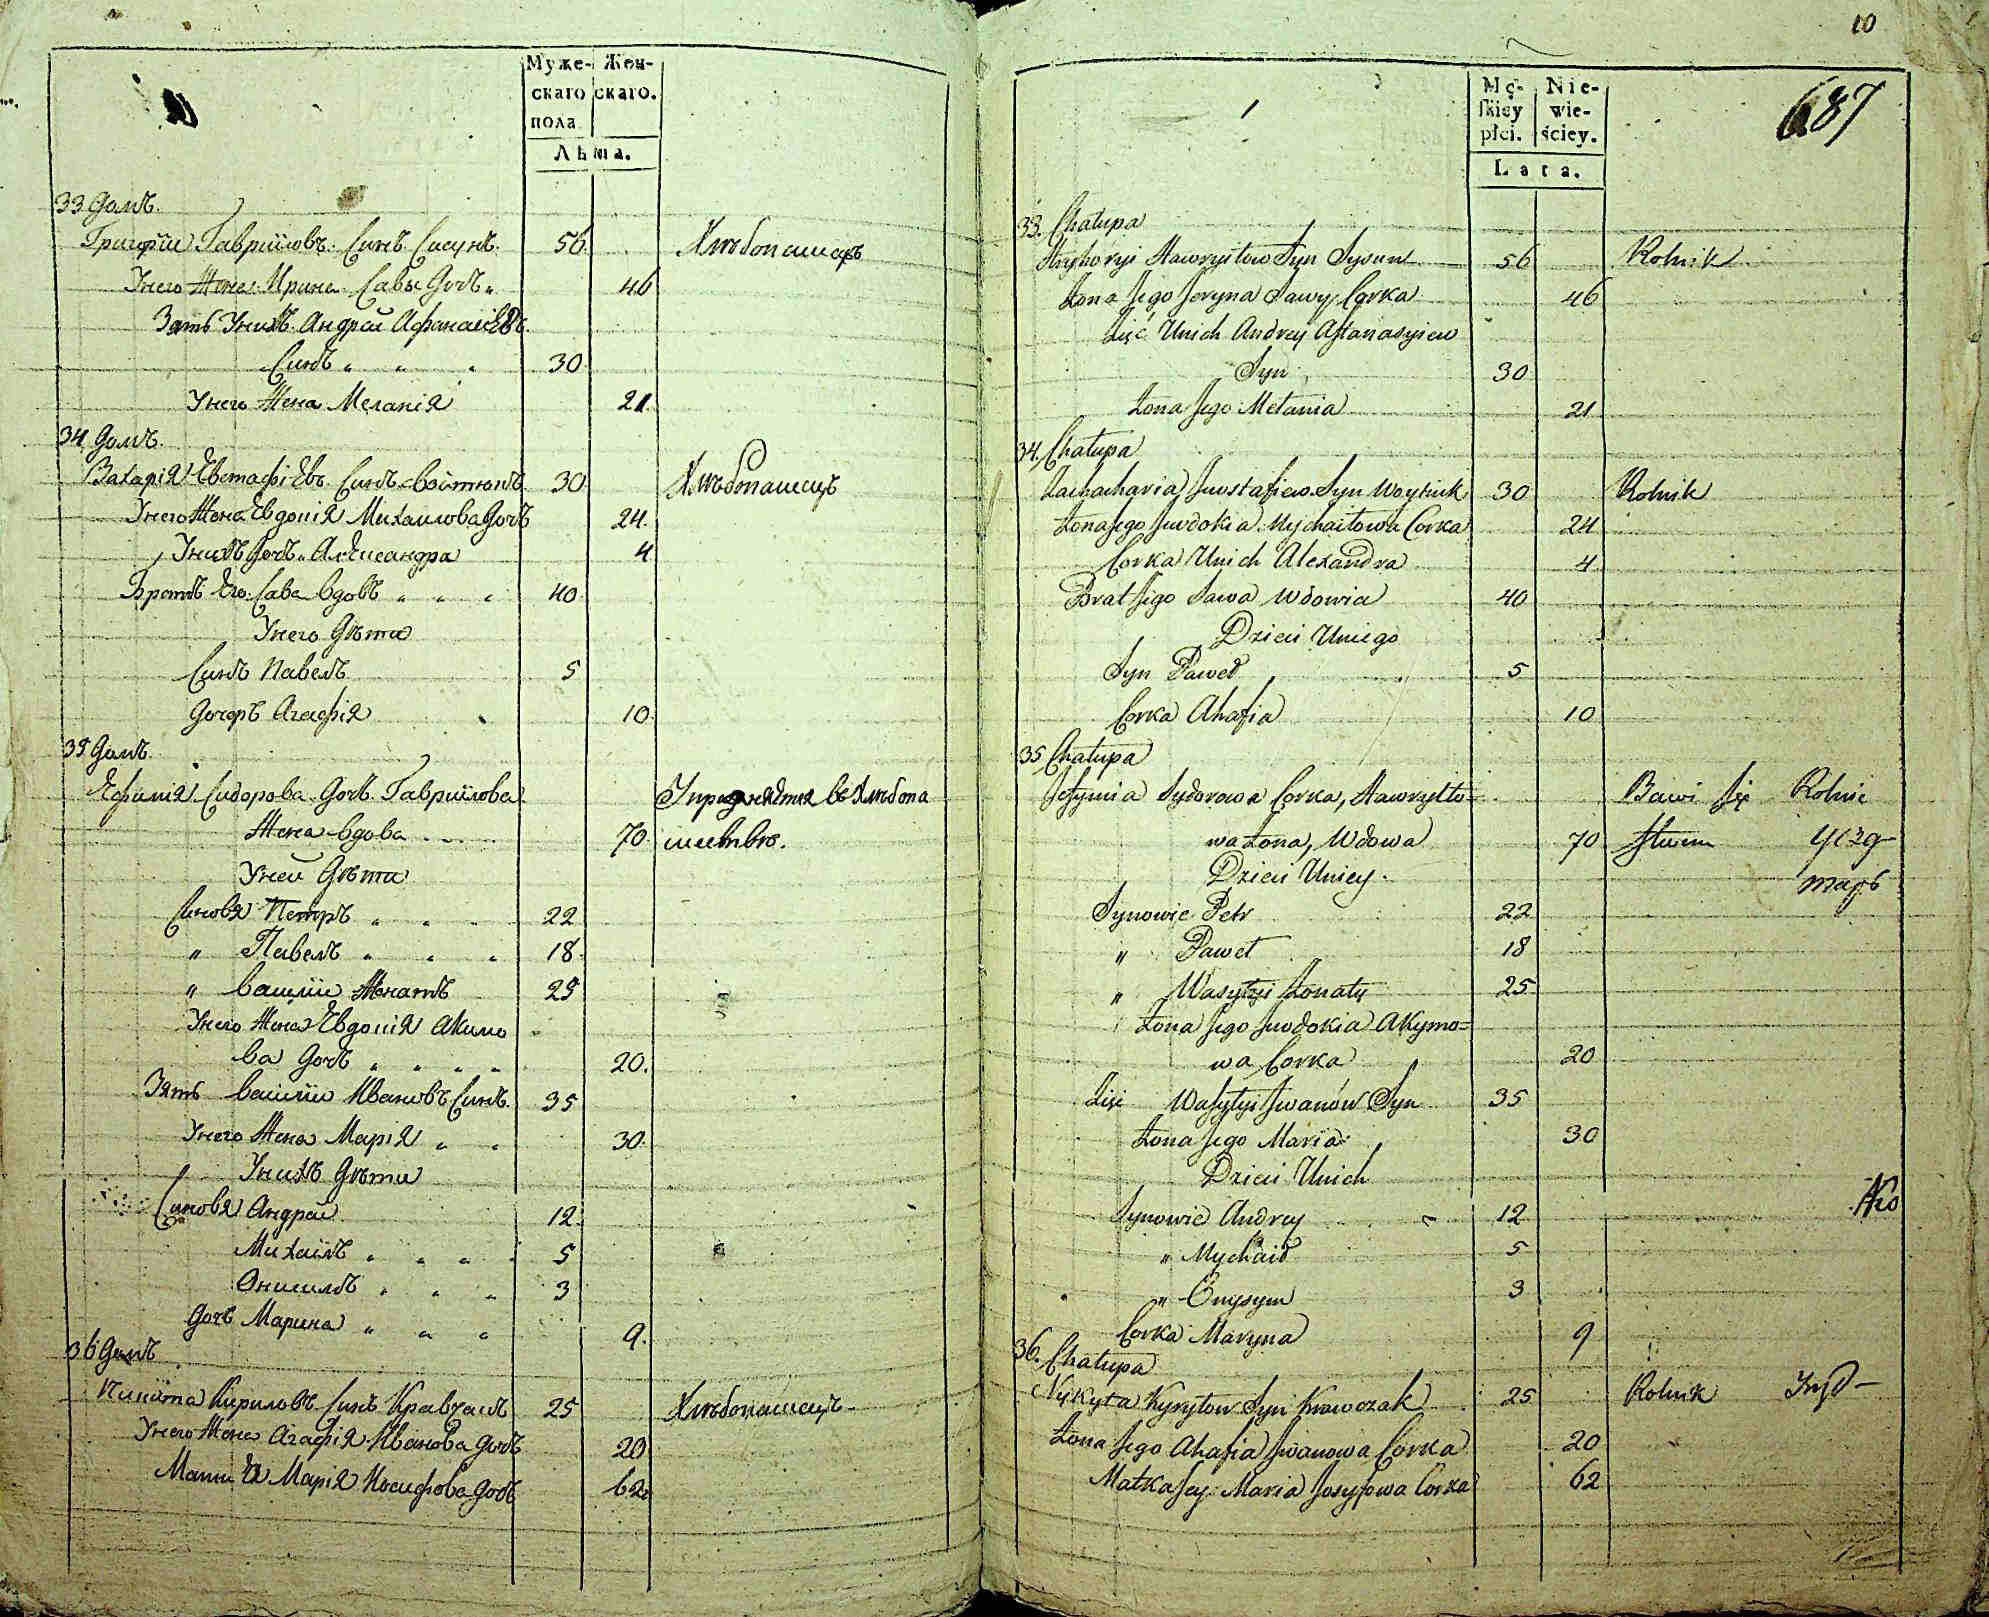 Муже- Жен-
скаго скаго.
пола
Лѣта.
33 Домъ.
Григорїи Гавриїловъ Синъ Сисунъ 56 Хлѣбопашецъ
Унего Жена Ирина Савы Дочь 46
Зять Унихъ Андрей Афанасіевъ
Синъ " " " 30
Унего Жена Меланія 21
34 Домъ.
Захарія Евстафіевъ Синъ Войтюкъ 30 Хлѣбопашецъ
Унего Жена Евдокія Михаилова Дочь 24.
Унихъ Дочь Александра 4
Братъ Его Сава Вдовъ " " " 40
Унего Дѣти
Синъ Павелъ 5
Дочеръ Агафія 10
35 Домъ
Ефимія Сидорова Дочь Гавриїлова Упражняется въ Хлѣбопа
Жена Вдова 70 шествѣ.
Уней Дѣти
Синовя Петръ " " " 22
" Павелъ " " " 18
" Василїи Женатъ 25
Унего Жена Евдокія Акимо
ва Дочь " " " " 20.
Зять Василїи Ивановъ Синъ 35
Унего Жена Марія " " 30
Унихъ Дѣти
Синовя Андрей 12
Михаилъ " " " " 5
Онисимъ " " " 3
Дочь Марина " " " 9.
36 Домъ
Никита Кириловъ Синъ Кравчакъ 25 Хлѣбопашецъ
Унего Жена Агафія Иванова Дочь 20
Мати Ея Марія Иосифова Дочь 62
10
Mę- Nie-
skiey wie-
płci. ściey.
Lata.
687
33. Chałupa
Hryhoryi Hawryiłow Syn Sysun 56 Rolnik
Żona Jego Jeryna Sawy Corka 46
Zięć Unich Andrey Aftanasyiew
Syn 30
Żona Jego Mełania 21
34. Chałupa
Zachacharia Jewstafiew Syn Woytiuk 30 Rolnik
Żona Jego Jewdokia Mychaiłowa Corka 24
Corka Unich Alexandra 4
Brat Jego Sawa Wdowia 40
Dzieci Uniego
Syn Paweł 5
Corka Ahafia 10
35 Chałupa
Jefymia Sydorowa Corka, Hawryłło- Bawi się Rolnic
wa Żona, Wdowa 70 stwem
Dzieci Uniey.
Synowie Petr 22
" Paweł 18
" Wasylyi Żonaty 25
Żona Jego Jewdokia Akymo=
wa Corka 20
Zięć Wasylyi Iwanów Syn 35
Żona Jego Maria 30
Dzieci Unich
Synowie Andrey 12
" Mychaił 5
" Onysym 3
Corka Maryna 9
36. Chałupa
Nykyta Kyryłow Syn Krawczak 25 Rolnik
Żona Jego Ahafia Iwanowa Corka 20
Matka Jey Maria Josyfowa Corka 62